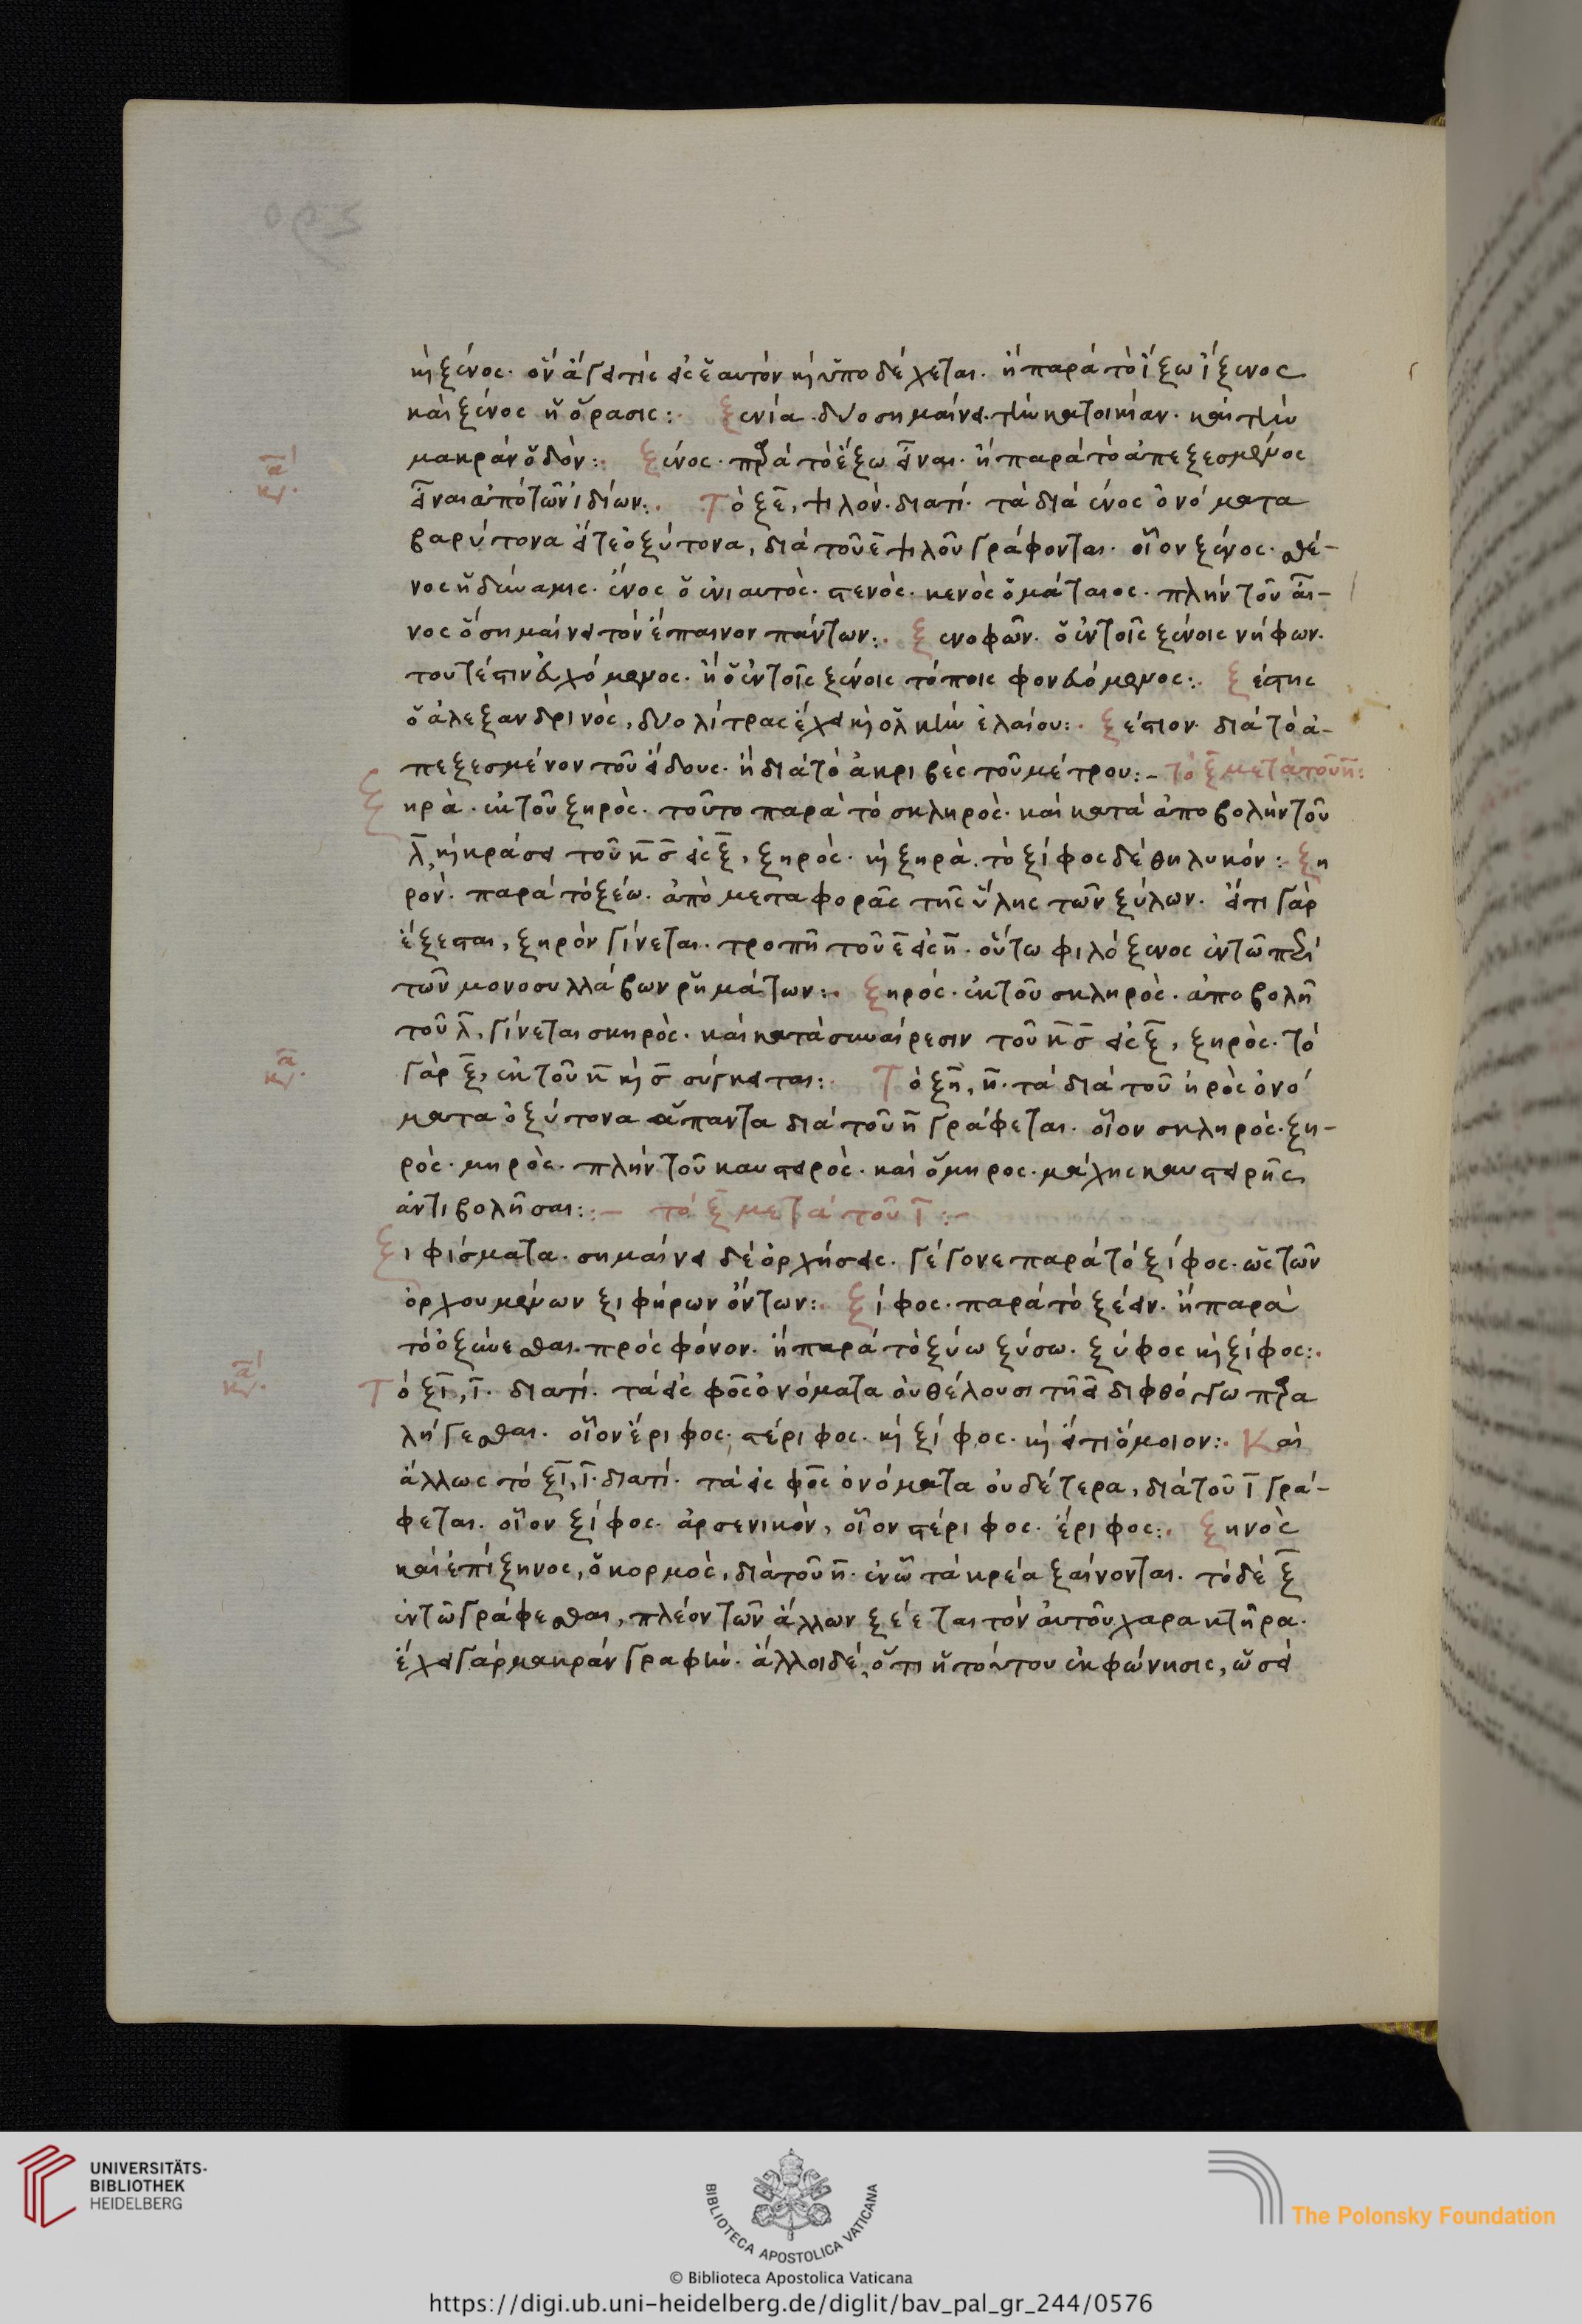 καὶ ξένος· ὃν ἄγει τις εἰς ἑαυτὸν καὶ ὑποδέχεται. ἢ παρὰ τὸ ἵξω ἵξενος
καὶ ξένος ἡ ὅρασις: ξενία· δύο σημαίνει· τὴν κατοικίαν· καὶ τὴν
μακρὰν ὁδόν: ξένος· παρὰ τὸ ἔξω εἶναι· ἢ παρὰ τὸ ἀπεξεσμένος
εἶναι ἀπὸ τῶν ἰδίων: Τὸ ξε, ψιλόν· διατί· τὰ διὰ ενος ὀνόματα
βαρύτονα εἴτε ὀξύτονα, διὰ τοῦ ε ψιλοῦ γράφονται· οἷον ξένος· σθέ-
νος ἡ δύναμις· ἕνος ὁ ἐνιαυτὸς· στενὸς· κενὸς ὁ μάταιος· πλὴν τοῦ αἶ-
νος ὁ σημαίνει τὸν ἔπαινον πάντων: ξενοφῶν· ὁ ἐν τοῖς ξένοις νήφων·
τουτέστιν δεχόμενος· ἢ ὁ ἐν τοῖς ξένοις τόποις φονευόμενος: ξέστης
ὁ ἀλεξανδρινὸς, δύο λίτρας ἔχει καὶ ὁλκὴν ἐλαίου: ξέστον· διὰ τὸ ἀ-
πεξεσμένον τοῦ εἴδους· ἢ διὰ τὸ ἀκριβὲς τοῦ μέτρου: τὸ ξ μετὰ τοῦ η:
ξηρὰ· ἐκ τοῦ ξηρὸς· τοῦτο παρὰ τὸ σκληρὸς· καὶ κατὰ ἀποβολὴν τοῦ
λ, καὶ κράσει τοῦ κ σ εἰς ξ, ξηρὸς· καὶ ξηρὰ· τὸ ξίφος δὲ θηλυκόν: ξη
ρόν· παρὰ τὸ ξέω· ἀπὸ μεταφορᾶς τῆς ὕλης τῶν ξύλων· εἴτι γὰρ
ἔξεσται, ξηρὸν γίνεται· τροπῇ τοῦ ε εἰς η· οὕτω φιλόξενος ἐν τῷ περὶ
τῶν μονοσυλλάβων ῥημάτων: ξηρός· ἐκ τοῦ σκληρὸς· ἀποβολῇ
τοῦ λ, γίνεται σκηρὸς· καὶ κατὰ συναίρεσιν τοῦ κ σ εἰς ξ, ξηρὸς· τὸ
γὰρ ξ, ἐκ τοῦ κ καὶ σ σύγκειται: Τὸ ξη, η· τὰ διὰ τοῦ ηρὸς ὀνό
ματα ὀξύτονα ἅπαντα διὰ τοῦ η γράφεται· οἷον σκληρὸς· ξη-
ρὸς· μηρὸς· πλὴν τοῦ καυστειρὸς· καὶ ὅμηρος· μάχης καυστειρῆς
ἀντιβολῆσαι: τὸ ξ μετὰ τοῦ ι:
Ξιφίσματα· σημαίνει δὲ ὀρχήσεις· γέγονε παρὰ τὸ ξίφος· ὡς τῶν
ὀρχουμένων ξιφήρων ὄντων: ξίφος· παρὰ τὸ ξέειν· ἢ παρὰ
τὸ ὀξύνεσθαι πρὸς φόνον· ἢ παρὰ τὸ ξύω ξύσω· ξύφος καὶ ξίφος:
Τὸ ξι, ι· διατί· τὰ εἰς φος ὀνόματα οὐ θέλουσι τῇ ει διφθόγγω παρα
λήγεσθαι· οἷον ἔριφος· στέριφος· καὶ ξίφος· καὶ εἴτι ὅμοιον: Καὶ
ἄλλως τὸ ξι, ι· διατί· τὰ εἰς φος ὀνόματα οὐδέτερα, διὰ τοῦ ι γρά-
φεται· οἷον ξίφος· ἀρσενικὸν, οἷον στέριφος· ἔριφος: ξηνὸς
καὶ ἐπίξηνος, ὁ κορμὸς, διὰ τοῦ η· ἐν ᾧ τὰ κρέα ξαίνονται· τὸ δὲ ξ
ἐν τῷ γράφεσθαι, πλέον τῶν ἄλλων ξέεται τὸν αὐτοῦ χαρακτῆρα·
ἔχει γὰρ μακρὰν γραφὴν· ἄλλοι δὲ, ὅτι ἡ τούτου ἐκφώνησις, ὡσεὶ
α
κ.
α
κ.
α
κ.
UNIVERSITÄTS-
BIBLIOTHEK
HEIDELBERG
BIBLIOTECA APOSTOLICA VATICANA
The Polonsky Foundation
© Biblioteca Apostolica Vaticana
https://digi.ub.uni-heidelberg.de/diglit/bav_pal_gr_244/0576